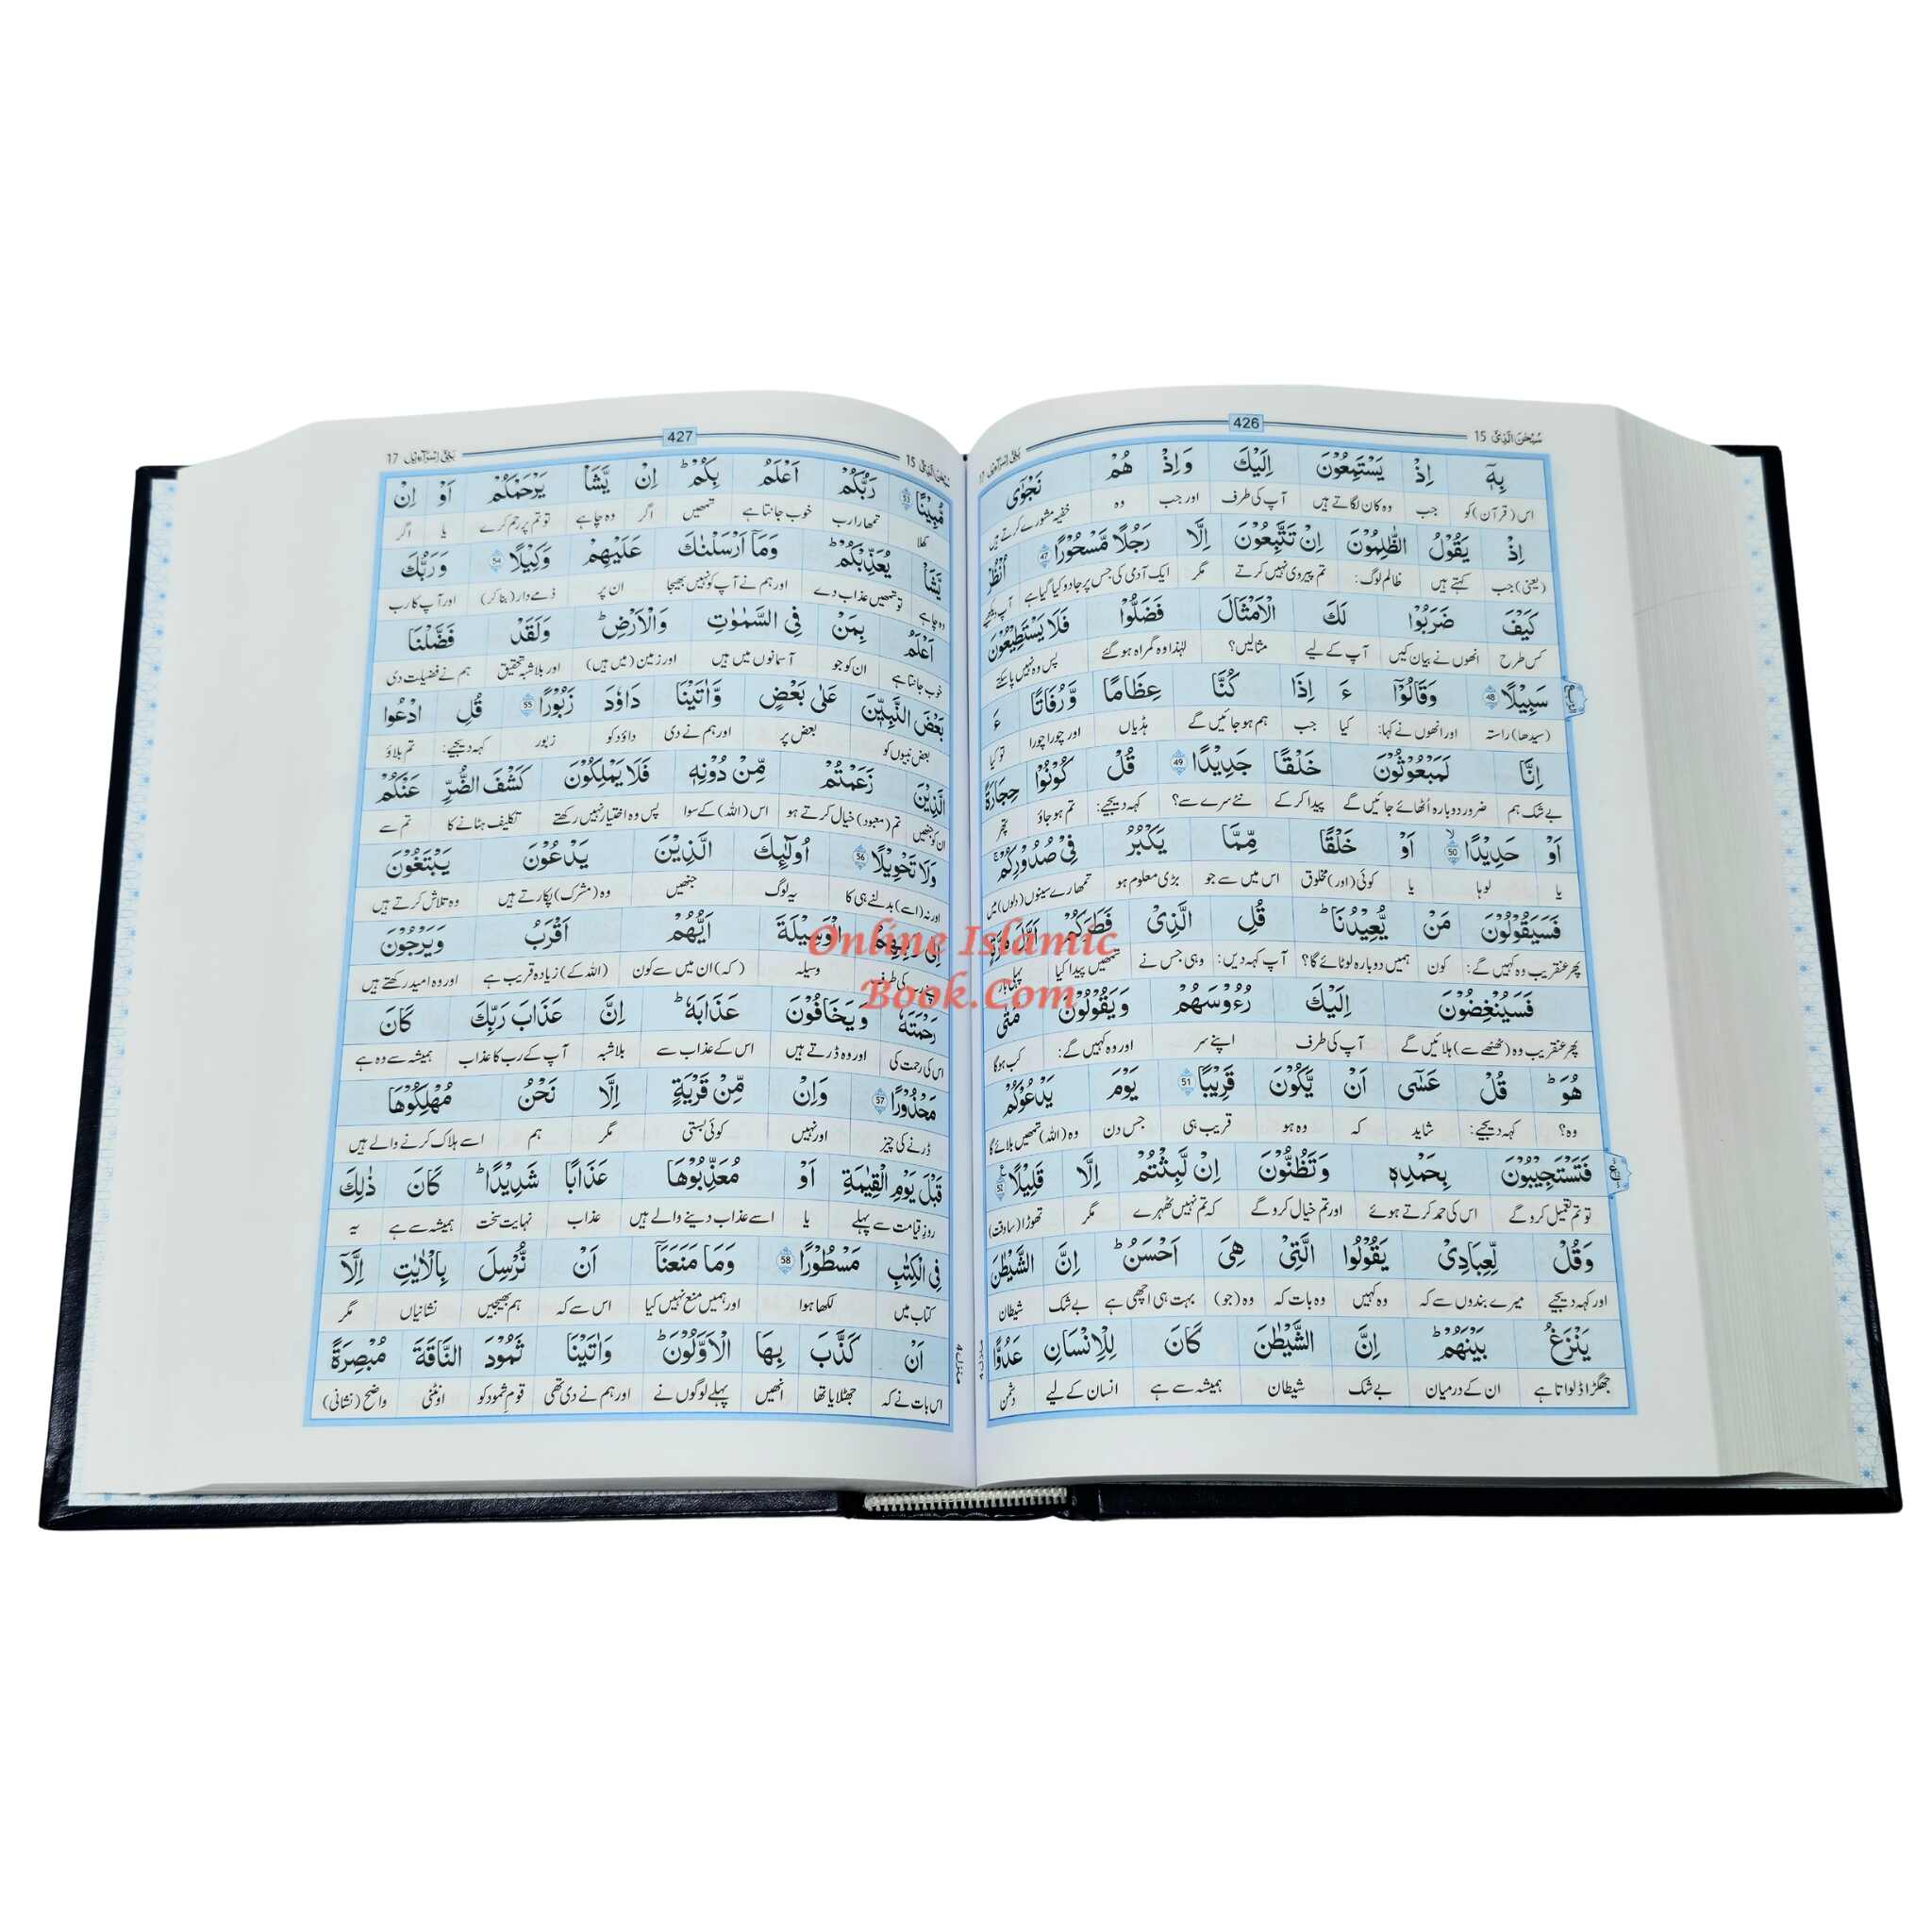 سُبْحٰنَ الَّذِيْٓ 15
426
بَنِيْٓ اِسْرَآءِيْل 17
بِهٖٓ اِذْ يَسْتَمِعُوْنَ اِلَيْكَ وَاِذْ هُمْ نَجْوٰٓى
اس (قرآن) کو جب وہ کان لگاتے ہیں آپ کی طرف اور جب وہ خفیہ مشورے کرتے ہیں
اِذْ يَقُوْلُ الظّٰلِمُوْنَ اِنْ تَتَّبِعُوْنَ اِلَّا رَجُلًا مَّسْحُوْرًا 47 اُنْظُرْ
(یعنی) جب کہتے ہیں ظالم لوگ: تم پیروی نہیں کرتے مگر ایک آدمی کی جس پر جادو کیا گیا ہے آپ دیکھیے
كَيْفَ ضَرَبُوْا لَكَ الْاَمْثَالَ فَضَلُّوْا فَلَا يَسْتَطِيْعُوْنَ
کس طرح انھوں نے بیان کیں آپ کے لیے مثالیں؟ لہٰذا وہ گمراہ ہو گئے پس وہ نہیں پا سکتے
سَبِيْلًا 48 وَقَالُوْٓا ءَ اِذَا كُنَّا عِظَامًا وَّرُفَاتًا ءَ
(سیدھا) راستہ اور انھوں نے کہا: کیا جب ہم ہو جائیں گے ہڈیاں اور چورا چورا تو کیا
اِنَّا لَمَبْعُوْثُوْنَ خَلْقًا جَدِيْدًا 49 قُلْ كُوْنُوْا حِجَارَةً
بے شک ہم ضرور دوبارہ اُٹھائے جائیں گے پیدا کر کے نئے سرے سے؟ کہہ دیجیے: تم ہو جاؤ پتھر
اَوْ حَدِيْدًا 50 اَوْ خَلْقًا مِّمَّا يَكْبُرُ فِيْ صُدُوْرِكُمْ
یا لوہا یا کوئی (اور) مخلوق اس میں سے جو بڑی معلوم ہو تمھارے سینوں (دلوں) میں
فَسَيَقُوْلُوْنَ مَنْ يُّعِيْدُنَا قُلِ الَّذِيْ فَطَرَكُمْ اَوَّلَ مَرَّةٍ
پھر عنقریب وہ کہیں گے: کون ہمیں دوبارہ لوٹائے گا؟ آپ کہہ دیں: وہی جس نے تمھیں پیدا کیا پہلی بار
فَسَيُنْغِضُوْنَ اِلَيْكَ رُءُوْسَهُمْ وَيَقُوْلُوْنَ مَتٰى
پھر عنقریب وہ (ٹھٹھے سے) ہلائیں گے آپ کی طرف اپنے سر اور وہ کہیں گے: کب ہوگا
هُوَ قُلْ عَسٰٓى اَنْ يَّكُوْنَ قَرِيْبًا 51 يَوْمَ يَدْعُوْكُمْ
وہ؟ کہہ دیجیے: شاید کہ وہ ہو قریب ہی جس دن وہ (اللہ) تمھیں بلائے گا
فَتَسْتَجِيْبُوْنَ بِحَمْدِهٖ وَتَظُنُّوْنَ اِنْ لَّبِثْتُمْ اِلَّا قَلِيْلًا 52
تو تم تعمیل کرو گے اس کی حمد کرتے ہوئے اور تم خیال کرو گے کہ تم نہیں ٹھہرے مگر تھوڑا (سا وقت)
وَقُلْ لِّعِبَادِيْ يَقُوْلُوا الَّتِيْ هِيَ اَحْسَنُ اِنَّ الشَّيْطٰنَ
اور کہہ دیجیے میرے بندوں سے کہ وہ کہیں وہ بات کہ وہ (جو) بہت ہی اچھی ہے بے شک شیطان
يَنْزَغُ بَيْنَهُمْ اِنَّ الشَّيْطٰنَ كَانَ لِلْاِنْسَانِ عَدُوًّا
جھگڑا ڈلواتا ہے ان کے درمیان بے شک شیطان ہمیشہ سے ہے انسان کے لیے دشمن
منزل 4
سُبْحٰنَ الَّذِيْٓ 15
427
بَنِيْٓ اِسْرَآءِيْل 17
مُّبِيْنًا 53 رَبُّكُمْ اَعْلَمُ بِكُمْ اِنْ يَّشَاْ يَرْحَمْكُمْ اَوْ اِنْ
کھلا تمھارا رب خوب جانتا ہے تمھیں اگر وہ چاہے تو تم پر رحم کرے یا اگر
يَّشَاْ يُعَذِّبْكُمْ وَمَآ اَرْسَلْنٰكَ عَلَيْهِمْ وَكِيْلًا 54 وَرَبُّكَ
وہ چاہے تو تمھیں عذاب دے اور ہم نے آپ کو نہیں بھیجا ان پر ذمے دار (بنا کر) اور آپ کا رب
اَعْلَمُ بِمَنْ فِي السَّمٰوٰتِ وَالْاَرْضِ وَلَقَدْ فَضَّلْنَا
خوب جانتا ہے ان کو جو آسمانوں میں ہیں اور زمین (میں ہیں) اور بلاشبہ تحقیق ہم نے فضیلت دی
بَعْضَ النَّبِيّٖنَ عَلٰى بَعْضٍ وَّاٰتَيْنَا دَاوٗدَ زَبُوْرًا 55 قُلِ ادْعُوا
بعض نبیوں کو بعض پر اور ہم نے دی داؤد کو زبور کہہ دیجیے: تم بلاؤ
الَّذِيْنَ زَعَمْتُمْ مِّنْ دُوْنِهٖ فَلَا يَمْلِكُوْنَ كَشْفَ الضُّرِّ عَنْكُمْ
ان کو جنھیں تم (معبود) خیال کرتے ہو اس (اللہ) کے سوا پس وہ اختیار نہیں رکھتے تکلیف ہٹانے کا تم سے
وَلَا تَحْوِيْلًا 56 اُولٰٓئِكَ الَّذِيْنَ يَدْعُوْنَ يَبْتَغُوْنَ
اور نہ (اسے) بدلنے ہی کا یہ لوگ جنھیں وہ (مشرک) پکارتے ہیں وہ تلاش کرتے ہیں
اِلٰى رَبِّهِمُ الْوَسِيْلَةَ اَيُّهُمْ اَقْرَبُ وَيَرْجُوْنَ
کی طرف وسیلہ (کہ) ان میں سے کون (اللہ کے) زیادہ قریب ہے اور وہ امید رکھتے ہیں
رَحْمَتَهٗ وَيَخَافُوْنَ عَذَابَهٗ اِنَّ عَذَابَ رَبِّكَ كَانَ
اس کی رحمت کی اور وہ ڈرتے ہیں اس کے عذاب سے بلاشبہ آپ کے رب کا عذاب ہمیشہ سے وہ ہے
مَحْذُوْرًا 57 وَاِنْ مِّنْ قَرْيَةٍ اِلَّا نَحْنُ مُهْلِكُوْهَا
ڈرنے کی چیز اور نہیں کوئی بستی مگر ہم اسے ہلاک کرنے والے ہیں
قَبْلَ يَوْمِ الْقِيٰمَةِ اَوْ مُعَذِّبُوْهَا عَذَابًا شَدِيْدًا كَانَ ذٰلِكَ
روزِ قیامت سے پہلے یا اسے عذاب دینے والے ہیں عذاب نہایت سخت ہمیشہ سے ہے یہ
فِي الْكِتٰبِ مَسْطُوْرًا 58 وَمَا مَنَعَنَآ اَنْ نُّرْسِلَ بِالْاٰيٰتِ اِلَّآ
کتاب میں لکھا ہوا اور ہمیں منع نہیں کیا اس سے کہ ہم بھیجیں نشانیاں مگر
اَنْ كَذَّبَ بِهَا الْاَوَّلُوْنَ وَاٰتَيْنَا ثَمُوْدَ النَّاقَةَ مُبْصِرَةً
اس بات نے کہ جھٹلایا تھا انھیں پہلے لوگوں نے اور ہم نے دی تھی قوم ثمود کو اونٹنی واضح (نشانی)
منزل 4
Online Islamic
Book.Com